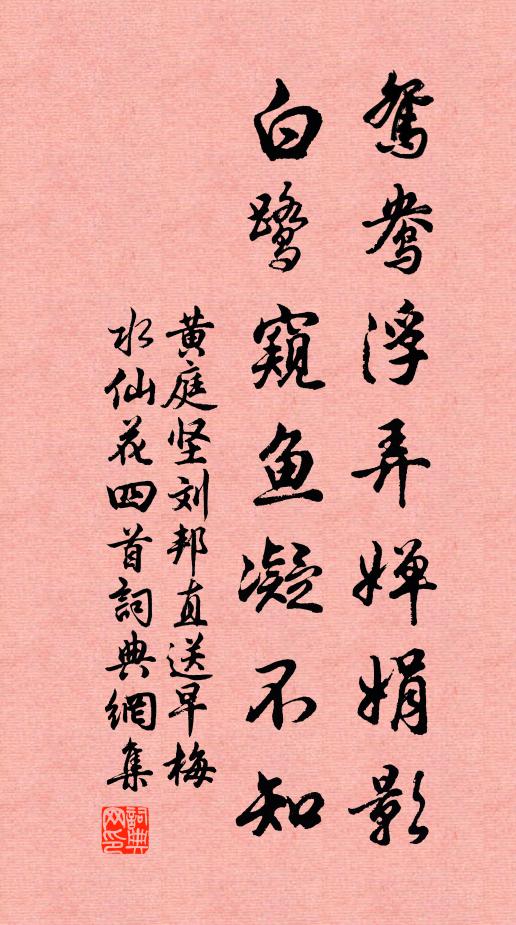 鸳鸯浮弄婵娟影
白鹭窥鱼凝不知
黄庭坚刘邦直送早梅
水仙花四首詞典網集
詞典网印